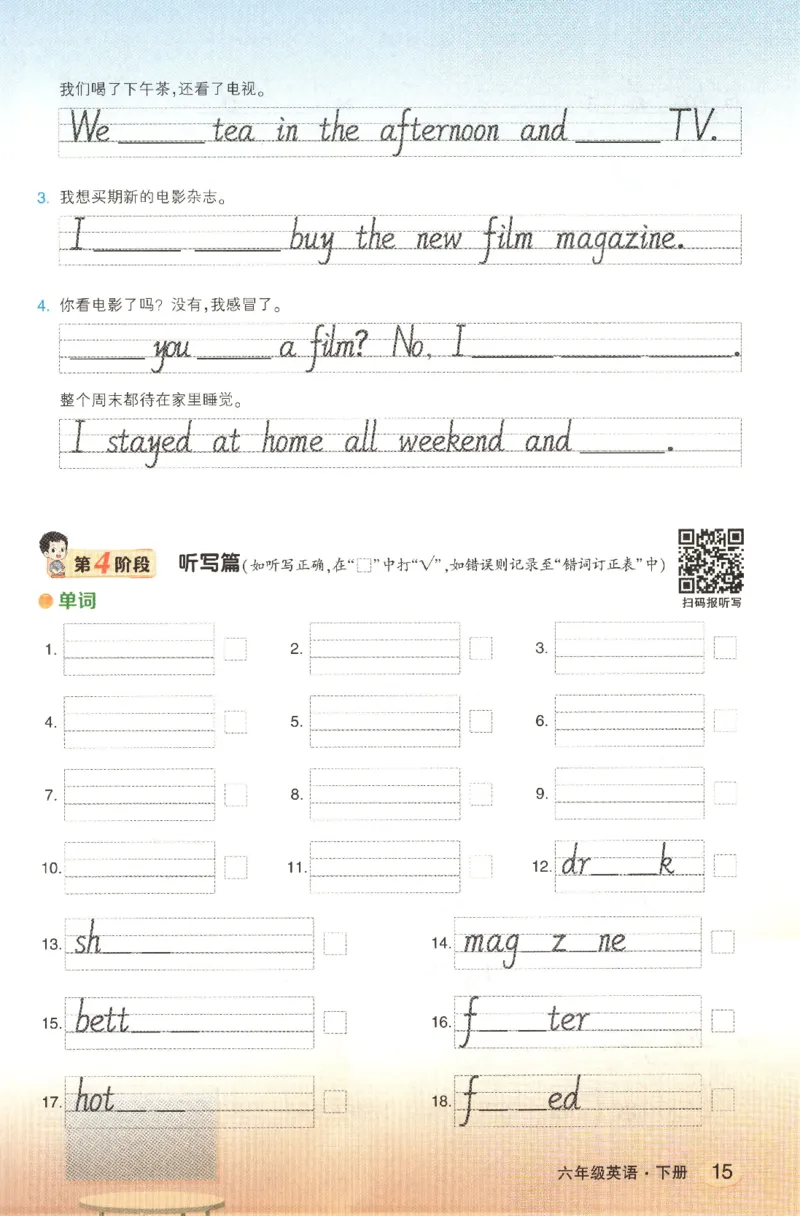 我们喝了下午茶,还看了电视。
We ______ tea in the afternoon and ______ TV.
3. 我想买期新的电影杂志。
I ______ ______ buy the new film magazine.
4. 你看电影了吗? 没有,我感冒了。
______ you ______ a film? No, I ______ ______ ______.
整个周末都待在家里睡觉。
I stayed at home all weekend and ______.
第4阶段 听写篇(如听写正确,在“□”中打“√”,如错误则记录至“错词订正表”中)
扫码报听写
单词
1. 2. 3.
4. 5. 6.
7. 8. 9.
10. 11. 12. dr____k
13. sh____
14. mag__z__ne
15. bett__ __
16. f__ __ter
17. hot__ __
18. f__ __ed
六年级英语·下册 15